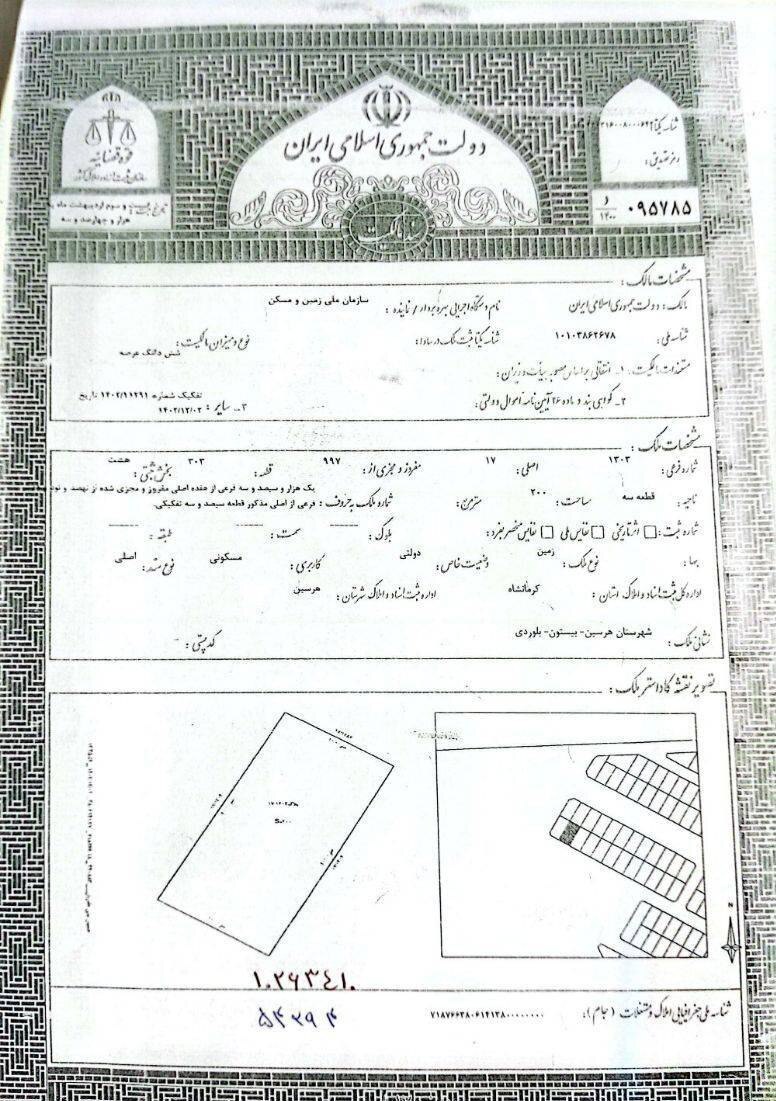 قوه قضائیه
سازمان ثبت اسناد و املاک کشور
و سوم اردیبهشت ماه
هزار و چهارصد و سه
دولت جمهوری اسلامی ایران
سند مالکیت
رمز تصدیق:
۰۹۵۷۸۵ و/۱۴۰۰
مشخصات مالک:
مالک: دولت جمهوری اسلامی ایران نام دستگاه اجرایی بهره‌بردار / نماینده: سازمان ملی زمین و مسکن
شناسه ملی: ۱۰۱۰۳۸۶۲۶۷۸ شناسه یکتا ثبت ملک در سادا: نوع و میزان مالکیت: شش دانگ عرصه
مستندات مالکیت: ۱- انتقالی بر اساس مصوبه هیات وزیران:
۲- گواهی بند و ماده ۲۶ آیین نامه اموال دولتی: ۳- سایر: تفکیک شماره: ۱۴۰۲/۱۱۲۹۱ تاریخ ۱۴۰۲/۱۲/۰۲
مشخصات ملک:
شماره فرعی: ۱۳۰۳ اصلی: ۱۷ مفروز و مجزی از: ۹۹۷ قطعه: ۳۰۳ بخش ثبتی: هشت
ناحیه: قطعه سه مساحت: ۲۰۰ مترمربع: شماره ملک به حروف: یک هزار و سیصد و سه فرعی از هفده اصلی مفروز و مجزی شده از نهصد و نود
فرعی از اصلی مذکور قطعه سیصد و سه تفکیکی.
شماره ثبت: اثر تاریخی نفایس ملی نفایس منحصر بفرد: بلوک: سمت: طبقه:
بها: نوع ملک: زمین وضعیت خاص: دولتی کاربری: مسکونی نوع سند: اصلی
اداره کل ثبت اسناد و املاک استان: کرمانشاه اداره ثبت اسناد و املاک شهرستان: هرسین
نشانی ملک: شهرستان هرسین- بیستون- بلوردی کدپستی: -
تصویر نقشه کاداستر ملک:
N
۱۰۲۶۳۴۱۰
شناسه ملی جغرافیایی املاک و مستغلات (جام): ۷۱۸۷۶۶۳۸۰۶۱۴۱۳۸۰۰۰۰۰۰۰۰
۵۴۲۹۴